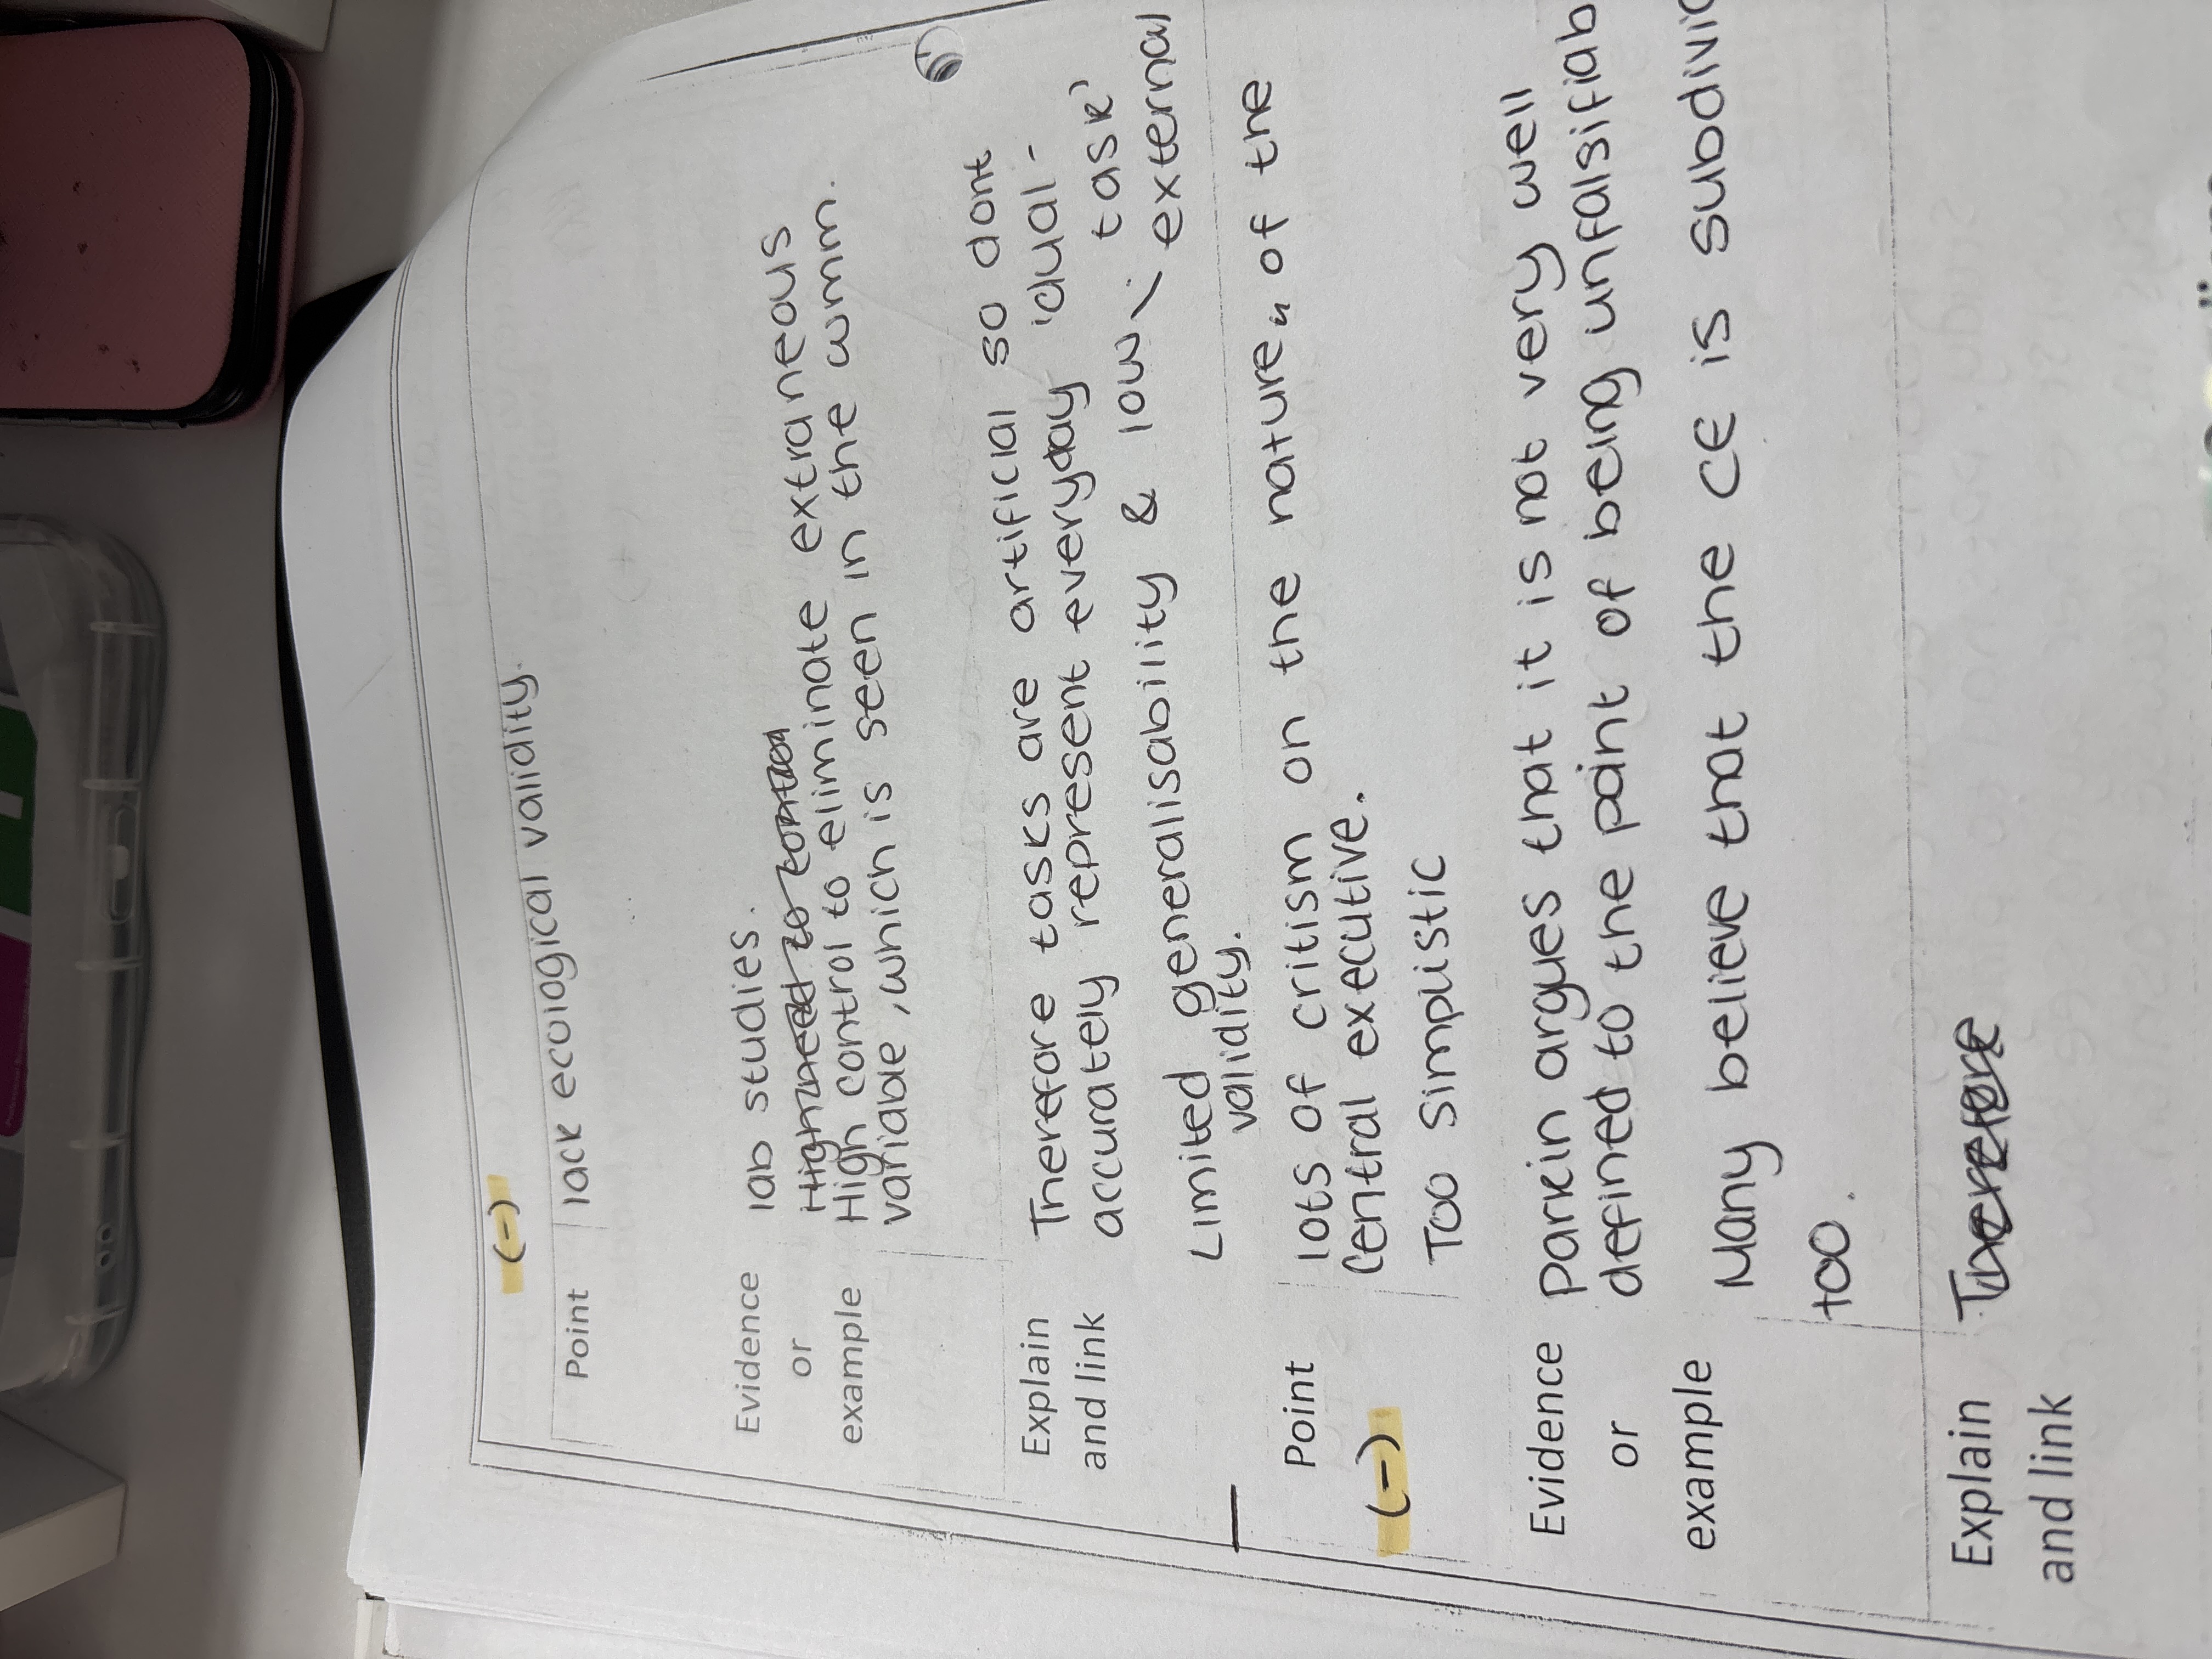 (-)
Point lack ecological validity.
Evidence or example lab studies.
High control to eliminate extraneous
variable, which is seen in the wmm.
Explain and link Therefore tasks are artificial so dont
accurately represent everyday 'dual-
task'
Limited generalisability & low external
validity.
Point lots of critism on the nature of the
(-) Central executive.
Too simplistic
Evidence or example Parkin argues that it is not very well
defined to the point of being unfalsifiab
Many believe that the CE is subdivid
too.
Explain and link